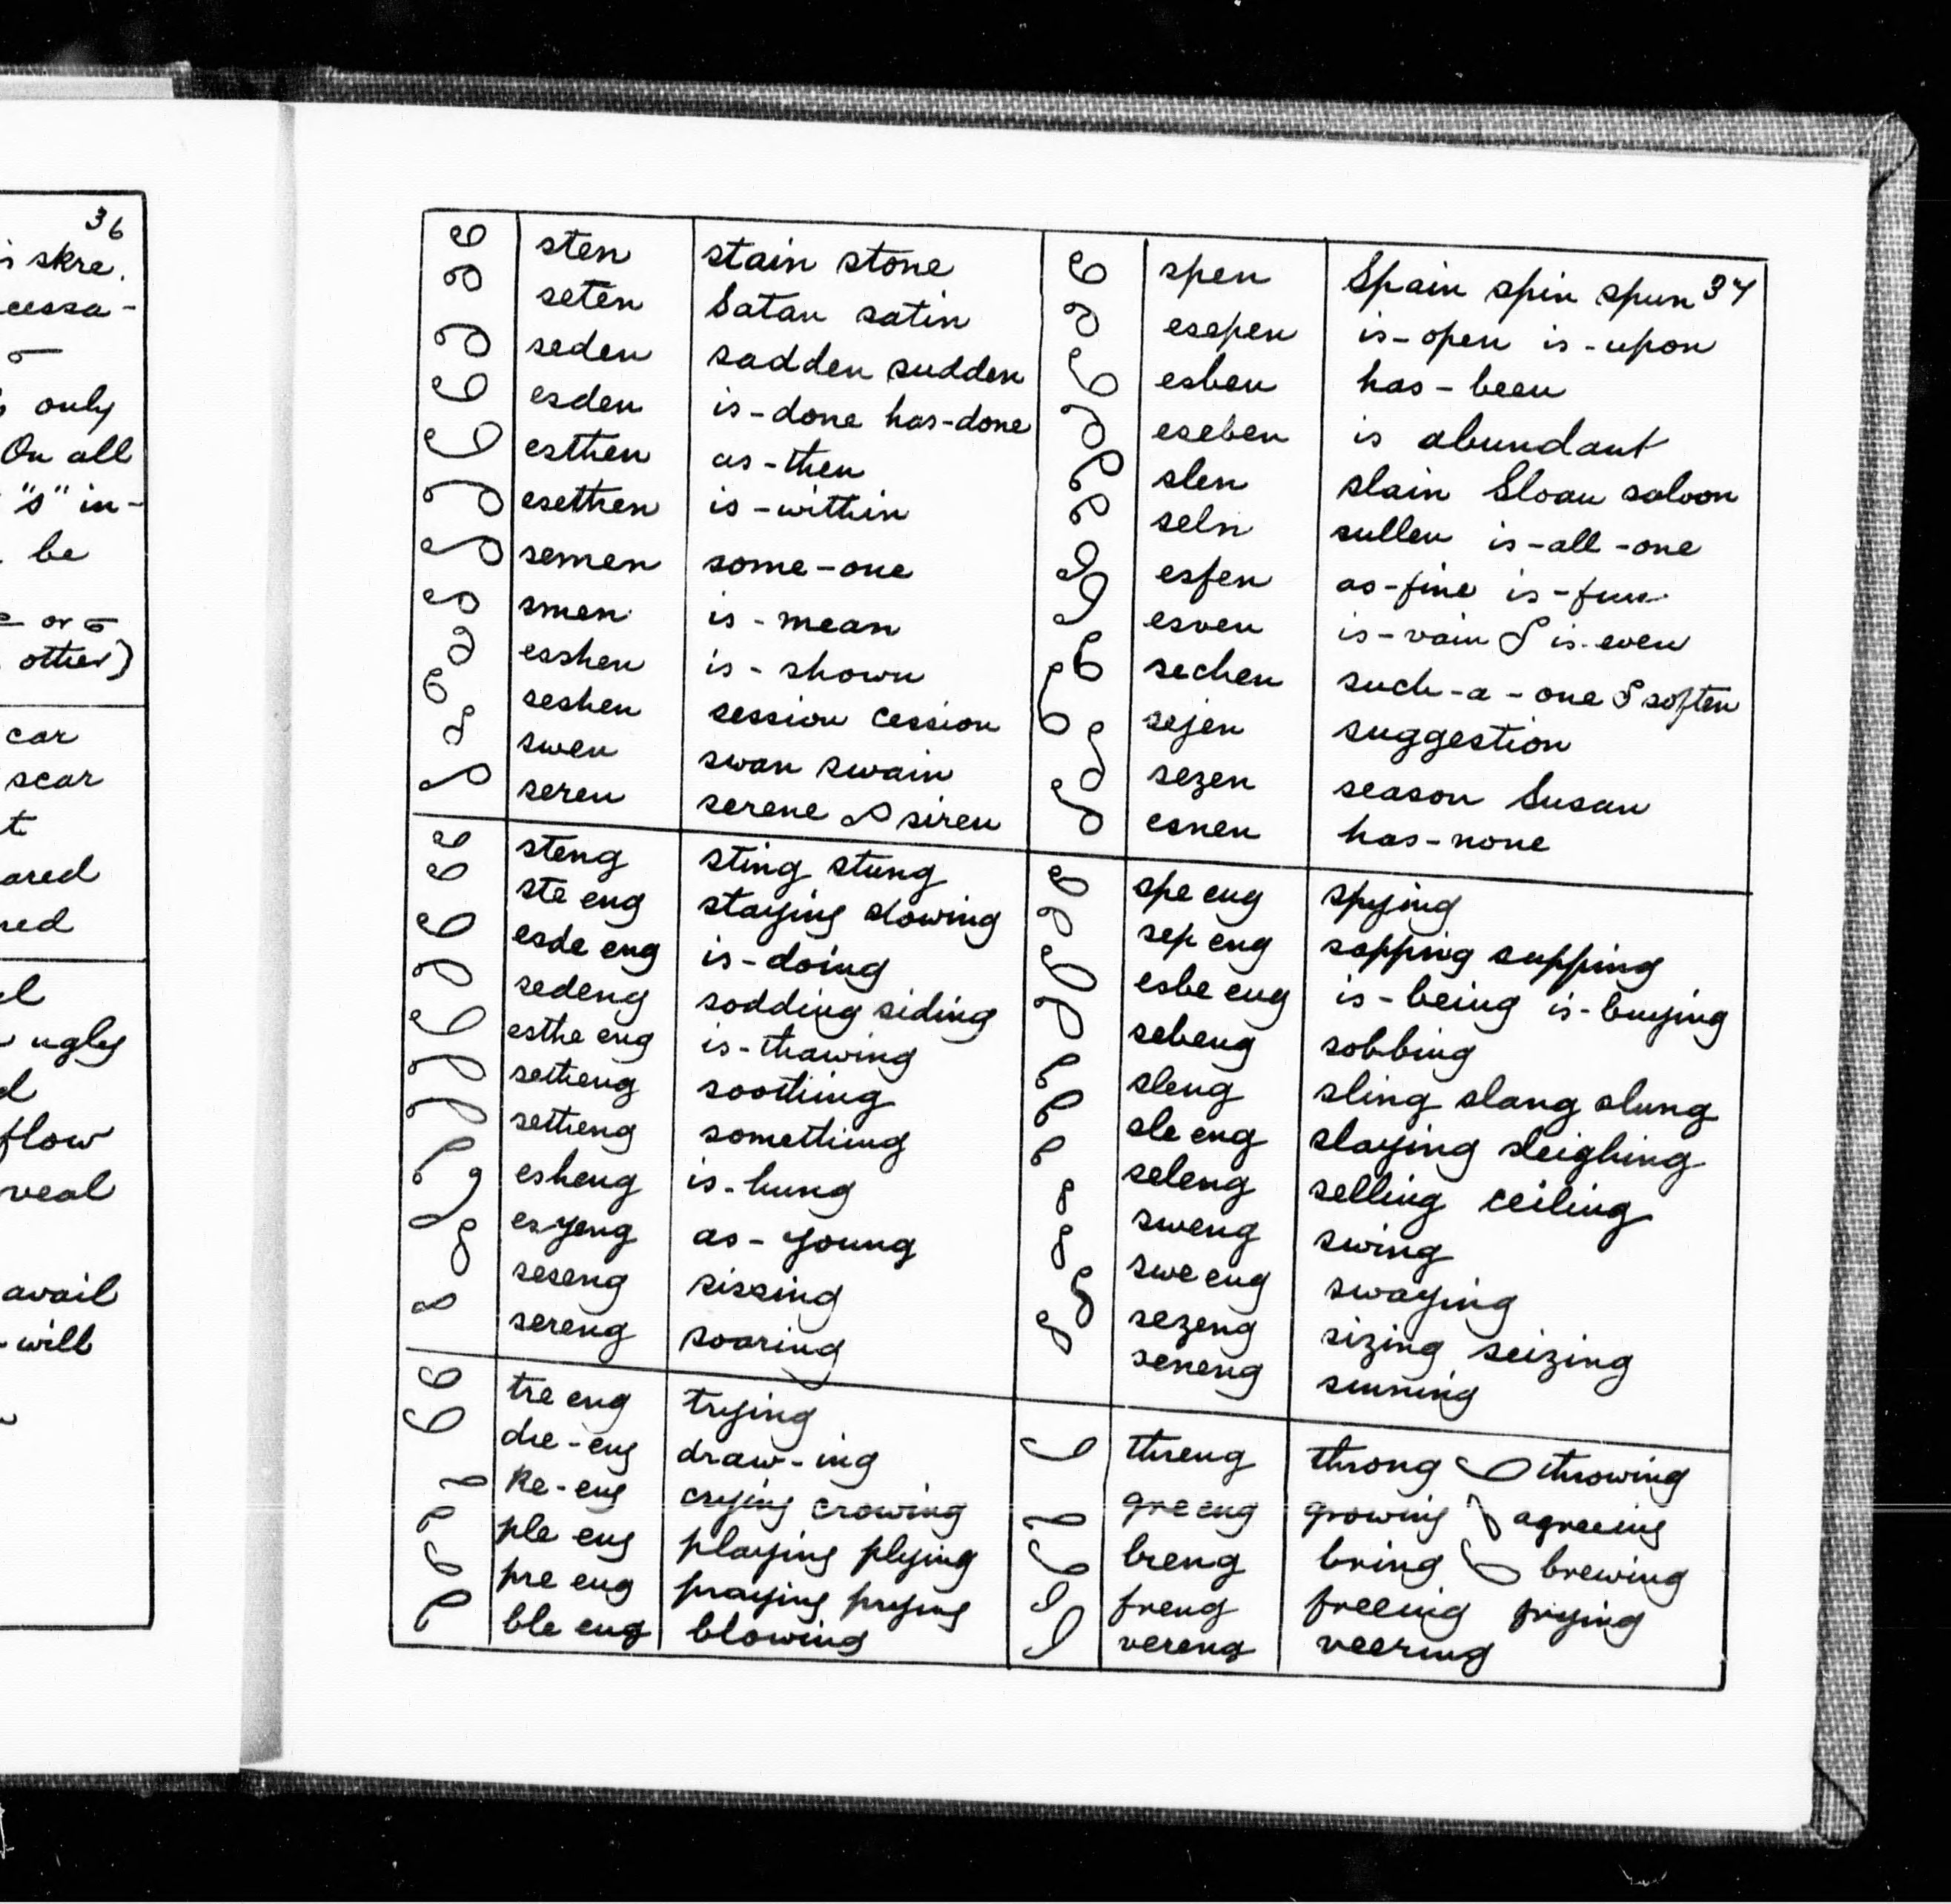 36
is skre.
cessa-
only
On all
"s" in-
be
or
other)
car
scar
t
ared
red
el
ugly
d
flow
veal
avail
-will
37
sten stain stone
seten Satan satin
seden sadden sudden
esden is-done has-done
esthen as-then
esethen is-within
semen some-one
smen is-mean
esshen is-shown
seshen session cession
swen swan swain
seren serene siren
spen Spain spin spun
esepen is-open is-upon
esben has-been
eseben is abundant
slen slain Sloan saloon
seln sullen is-all-one
esfen as-fine is-fun
esven is-vain is-even
sechen such-a-one soften
sejen suggestion
sezen season Susan
esnen has-none
steng sting stung
ste eng staying stowing
esde eng is-doing
sedeng sodding siding
esthe eng is-thawing
setheng soothing
setheng something
esheng is-hung
esyeng as-young
seseng sissing
sereng soaring
spe eng spying
sep eng sopping supping
esbe eng is-being is-buying
sebeng sobbing
sleng sling slang slung
sle eng slaying sleighing
seleng selling ceiling
sweng swing
swe eng swaying
sezeng sizing seizing
seneng sinning
tre eng trying
dre-eng draw-ing
kre-eng crying crowing
ple eng playing plying
pre eng praying prying
ble eng blowing
threng throng throwing
gre eng growing agreeing
breng bring brewing
freng freeing frying
vereng veering